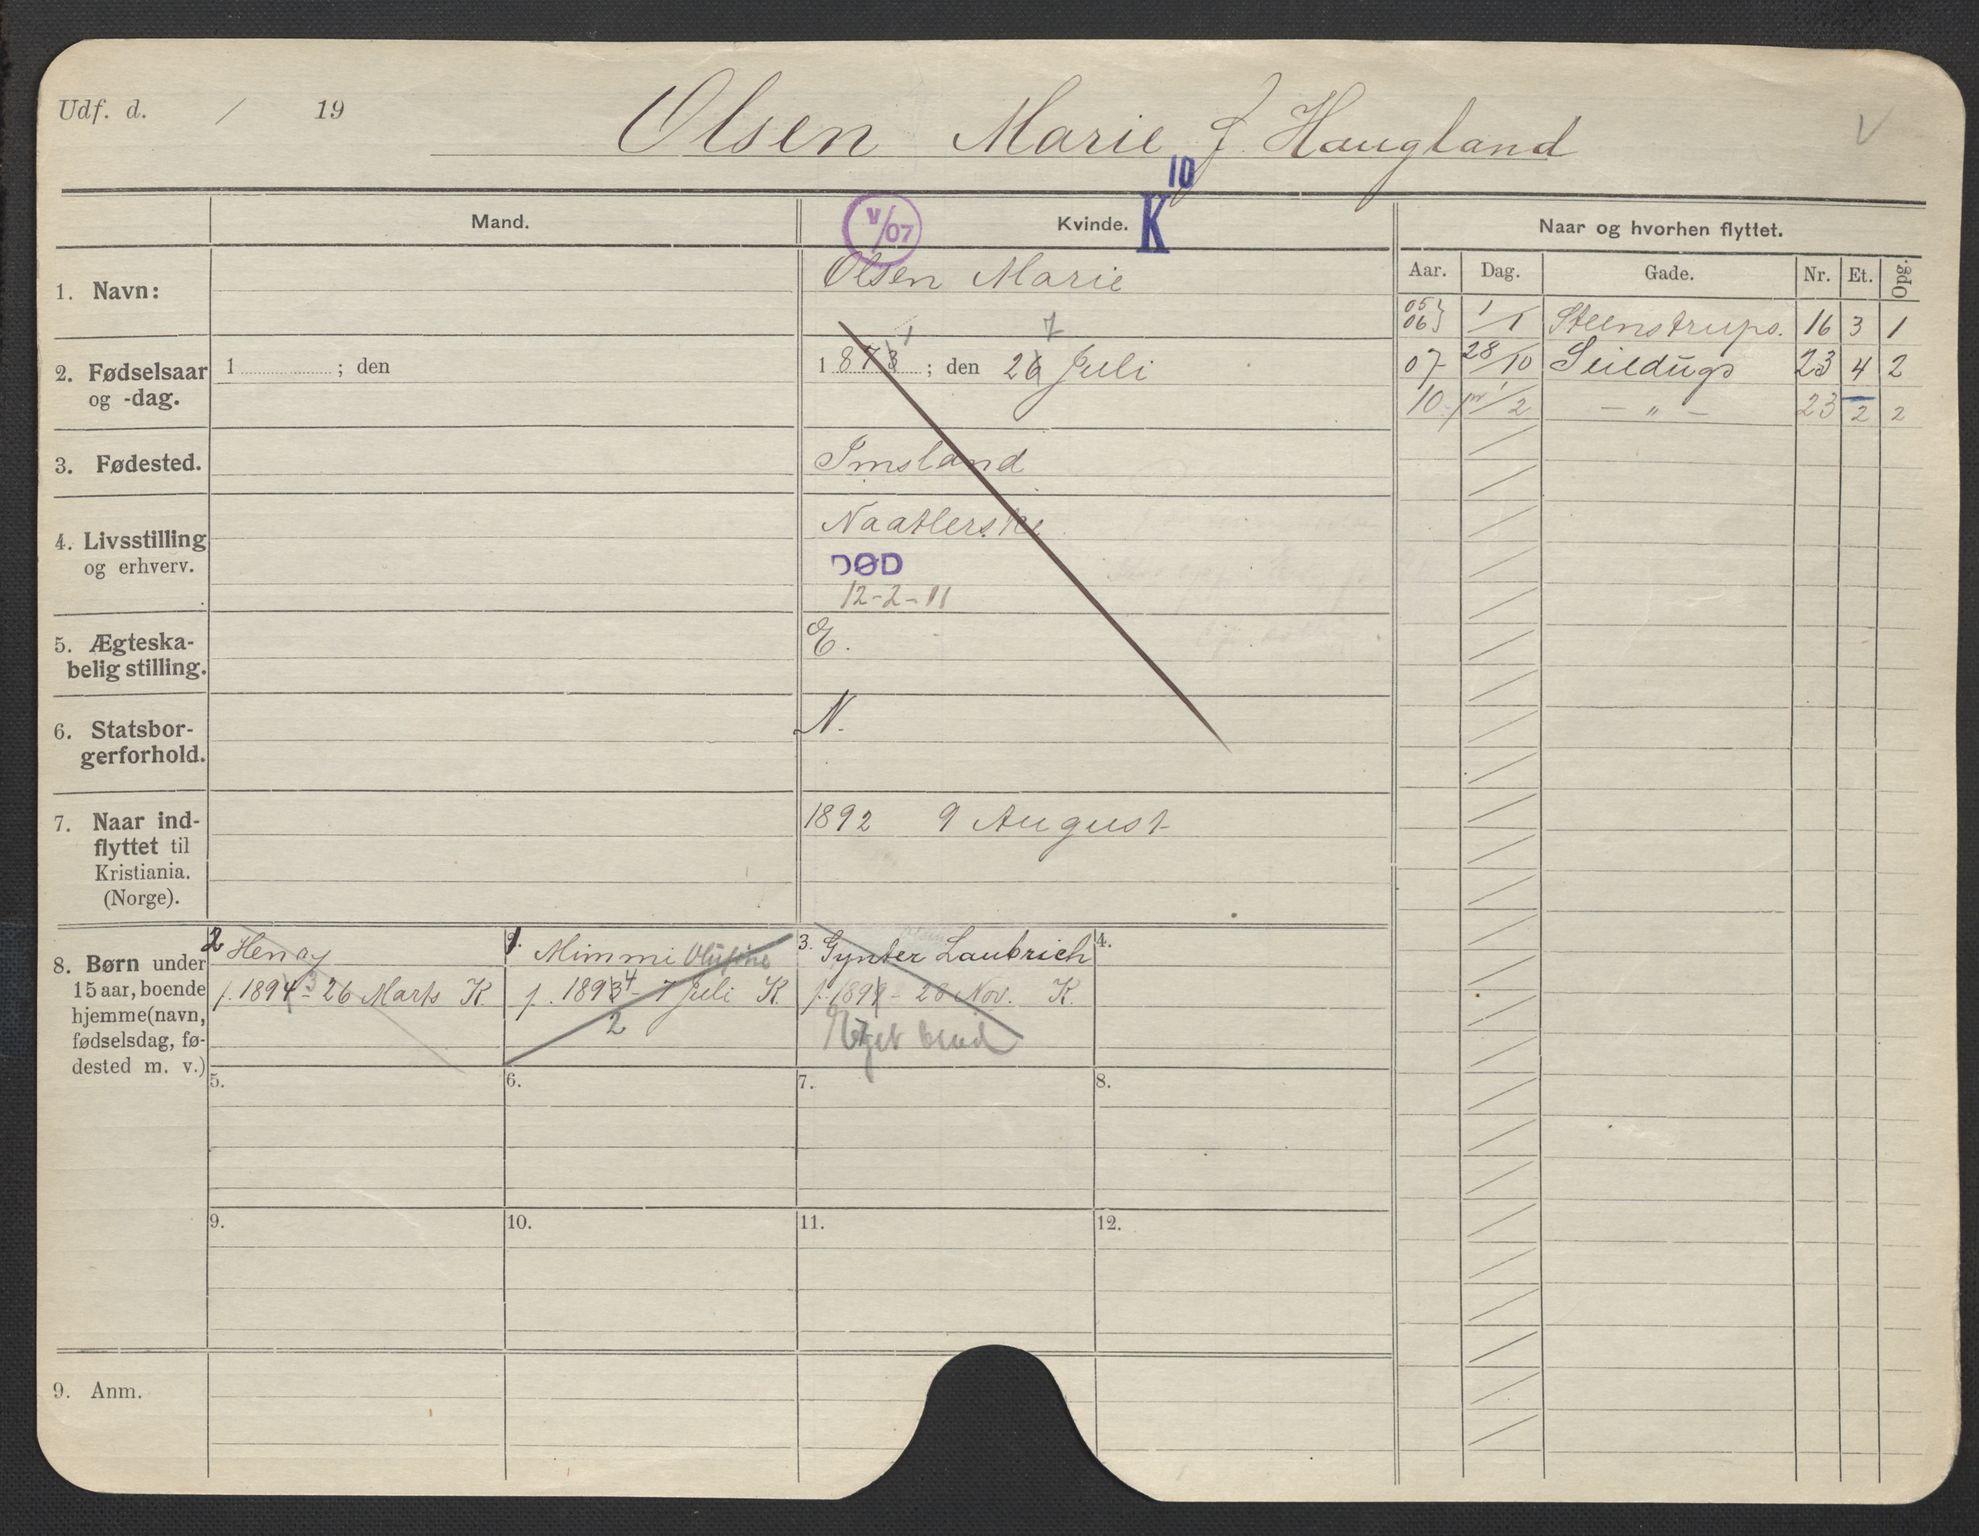 Udf. d. / 19
Olsen Marie f. Haugland
V
10
K
V/07
Mand.
Kvinde.
Naar og hvorhen flyttet.
Aar. Dag. Gade. Nr. Et. Opg.
05 06} 1/1 Steenstrups. 16 3 1
07 28/10 Seildugs 23 4 2
10 1/2 — " — 23 2 2
1. Navn:
Olsen Marie
2. Fødselsaar og -dag.
1 ; den
1 873 ; den 26 Juli
1 7
3. Fødested.
Imsland
4. Livsstilling og erhverv.
Naatlerske
DØD
12-2-11
5. Ægteskabelig stilling.
E.
6. Statsborgerforhold.
N.
7. Naar indflyttet til Kristiania. (Norge).
1892 9 August
8. Børn under 15 aar, boende hjemme (navn, fødselsdag, fødested m. v.)
2 Henry
f. 1894 3 - 26 Marts K.
1. Mimmi Olufine
f. 1893 4 - 7 Juli K.
2
3. Gynter Laubrich
f. 1899 - 28 Nov. K.
4.
5.
6.
7.
8.
9.
10.
11.
12.
9. Anm.